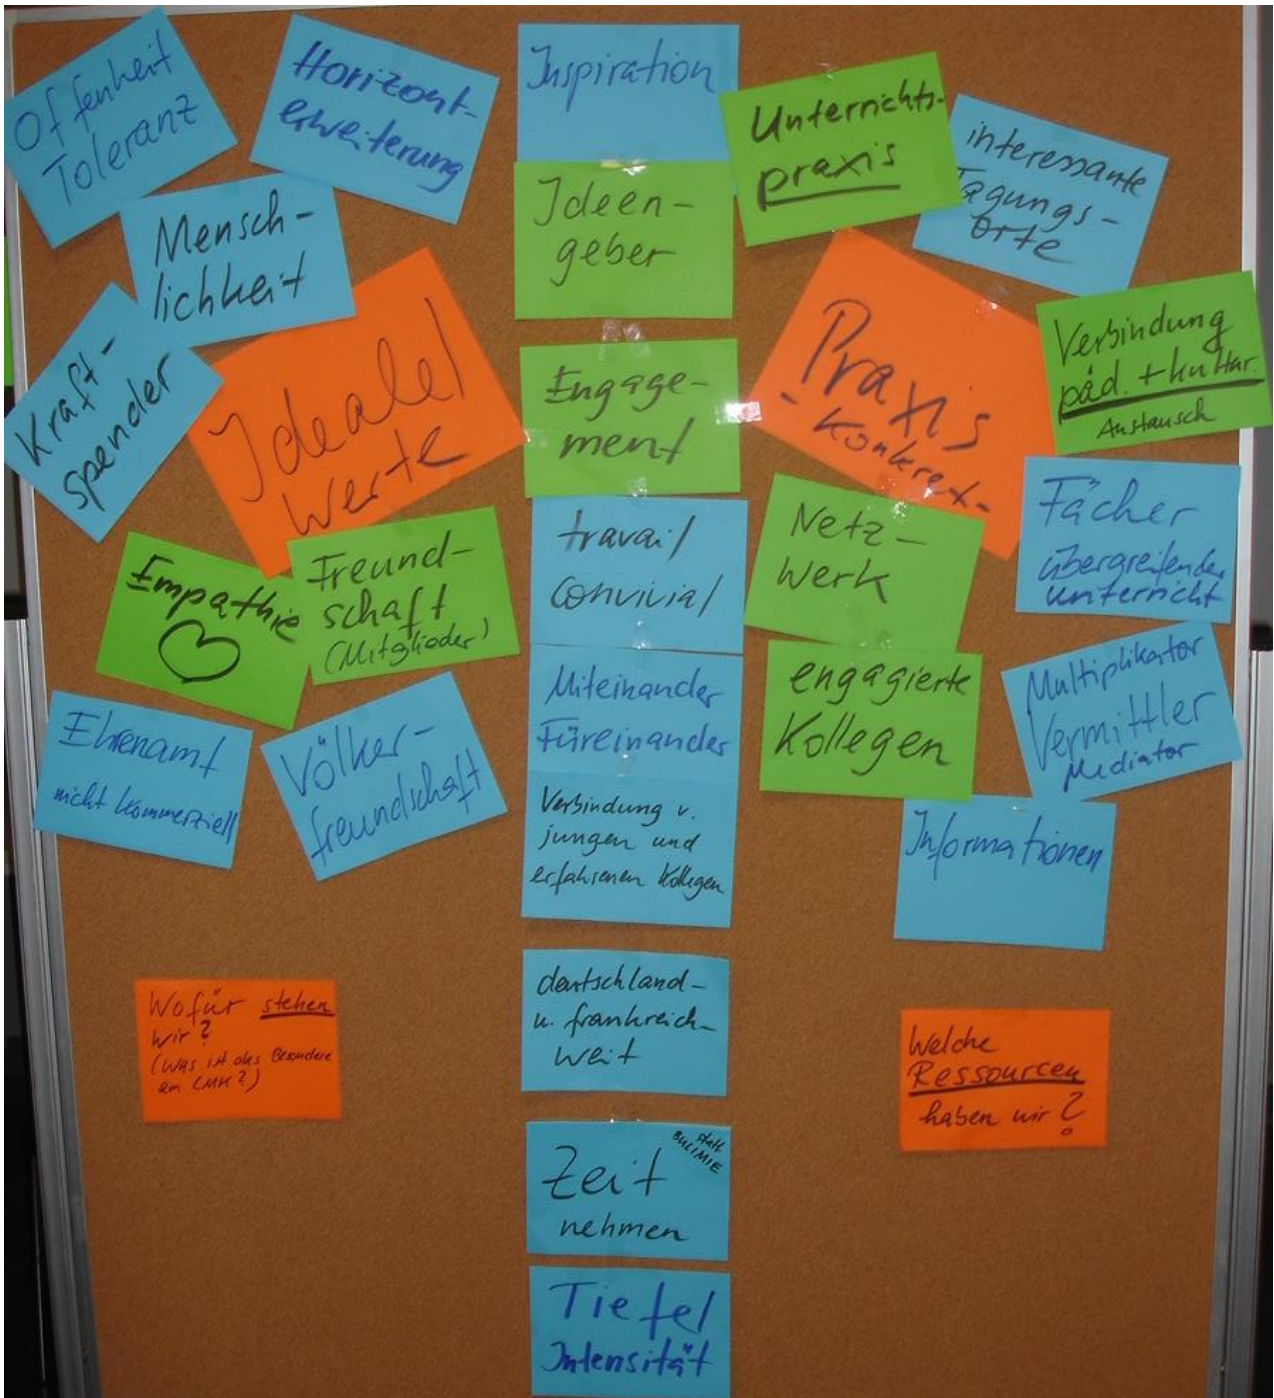 Offenheit
Toleranz
Horizont-
erweiterung
Mensch-
lichkeit
Kraft-
spender
Ideale/
Werte
Empathie
Freund-
schaft
(Mitglieder)
Ehrenamt
nicht kommerziell
Völker-
freundschaft
Wofür stehen
wir?
(Was ist das Besondere
am CMK?)
Inspiration
Ideen-
geber
Engage-
ment
travail
convivial
Miteinander
Füreinander
Verbindung v.
jungen und
erfahrenen Kollegen
deutschland-
u. frankreich-
weit
statt
BULIMIE
Zeit
nehmen
Tiefe/
Intensität
Unterrichts-
praxis
interessante
Tagungs-
orte
Praxis
- Konkret -
Verbindung
päd. + kultur.
Austausch
Netz-
werk
Fächer
übergreifender
unterricht
engagierte
Kollegen
Multiplikator
Vermittler
Mediator
Informationen
Welche
Ressourcen
haben wir?